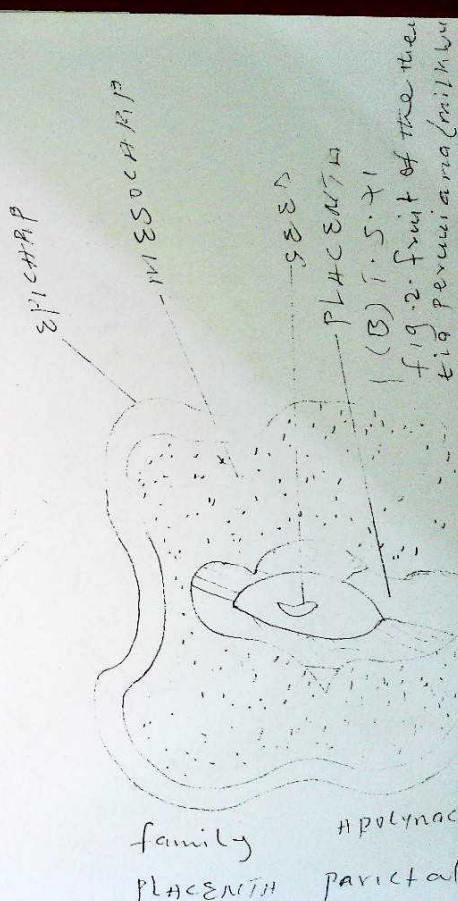 EPICARP
MESOCARP
SEED
PLACENTA
(B) T.S. x1
fig. 2. fruit of the the
tia peruviana (milk bu
family Apolynac
PLACENTA parietal